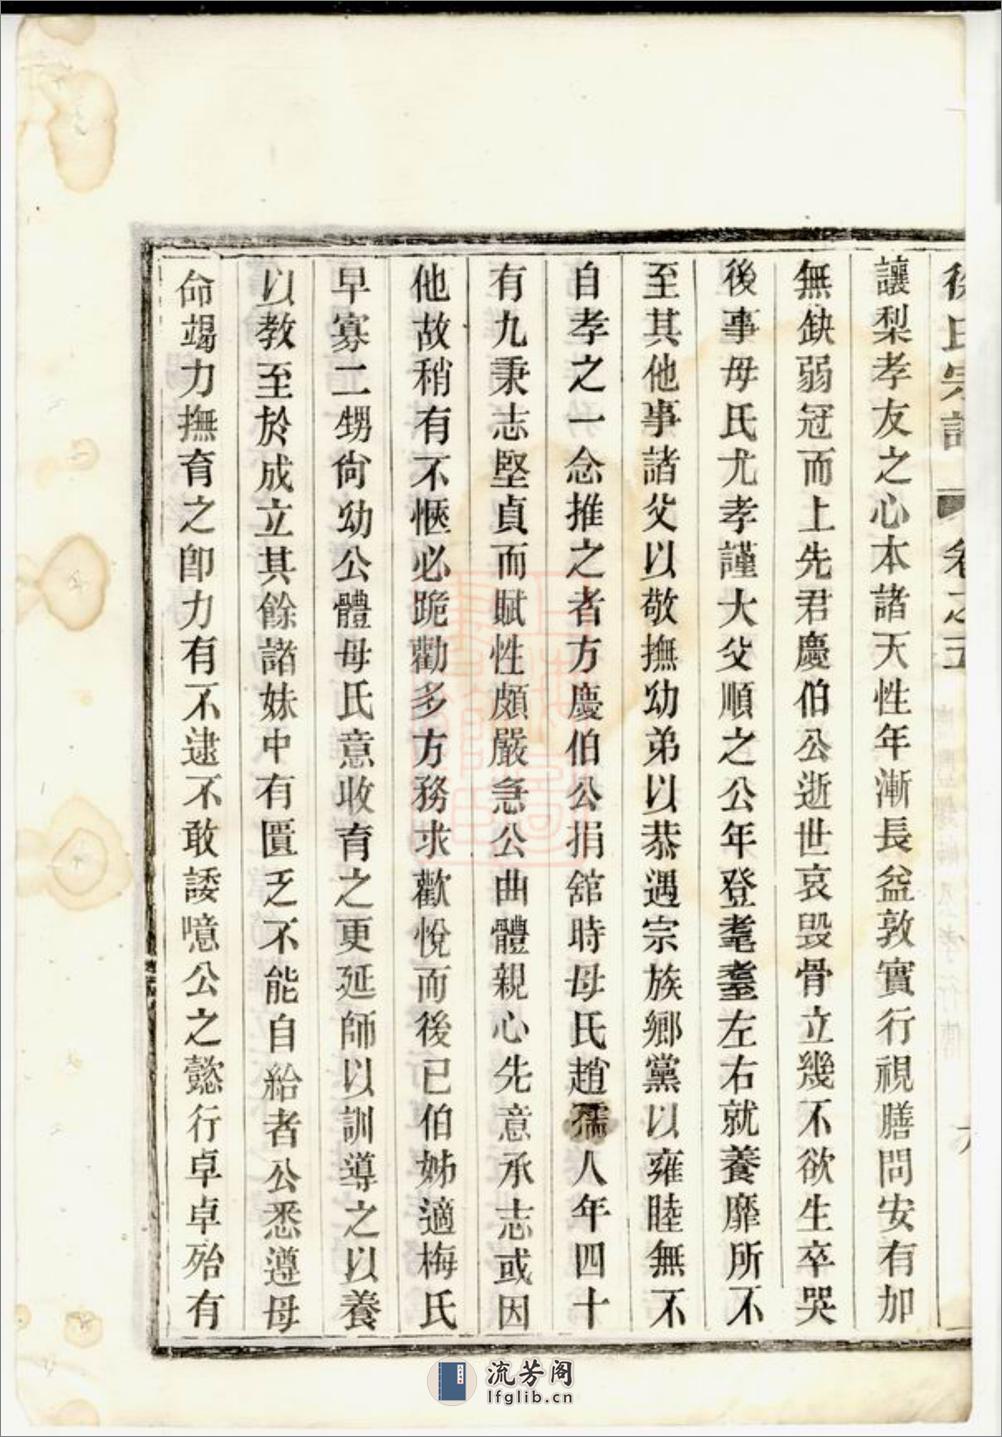 徐氏宗譜 卷之五
讓梨孝友之心本諸天性年漸長益敦實行視膳問安有加
無缺弱冠而上先君慶伯公逝世哀毀骨立幾不欲生卒哭
後事母氏尤孝謹大父順之公年登耄耋左右就養靡所不
至其他事諸父以敬撫幼弟以恭遇宗族鄉黨以雍睦無不
自孝之一念推之者方慶伯公捐舘時母氏趙孺人年四十
有九秉志堅貞而賦性頗嚴急公曲體親心先意承志或因
他故稍有不愜必跪勸多方務求歡悅而後已伯姊適梅氏
早寡二甥尙幼公體母氏意收育之更延師以訓導之以養
以教至於成立其餘諸妹中有匱乏不能自給者公悉遵母
命竭力撫育之卽力有不逮不敢諉噫公之懿行卓卓殆有
流芳阁
lfglib.cn